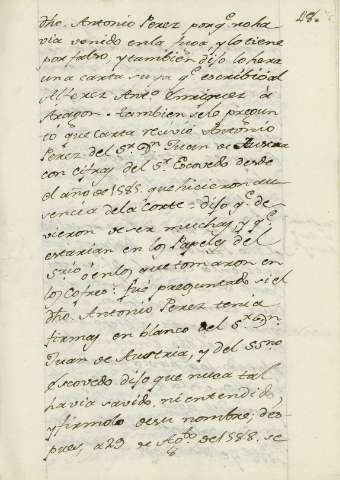 48.
dho. Antonio Perez porq.e no ha
via venido en la suya y lo tiene
por falso, y tambien dijo lo hera
una carta suya q.e escribió al
Alferez Ant.o Enriquez à
Aragon. tambien se lo pregun
tó que carta recivió Antonio
Perez del S.or D.n Juan de Austria
con cifras del S.o Escovedo desde
el año de 1585. que hicieron au
sencia de la Corte = dijo q.e de
vieron de ser muchas, y q.e
estarian en los Papeles del
ó en los que tomaron en
los Cofres: fué preguntado si el
dho. Antonio Perez tenia
firmas en blanco del S.or D.n
Juan de Austria, y del SSño
Escovedo dijo que nunca tal
havia savido, ni entendido,
y firmolo de su nombre; des
pues, a 29 de Ag.to de 1588. se